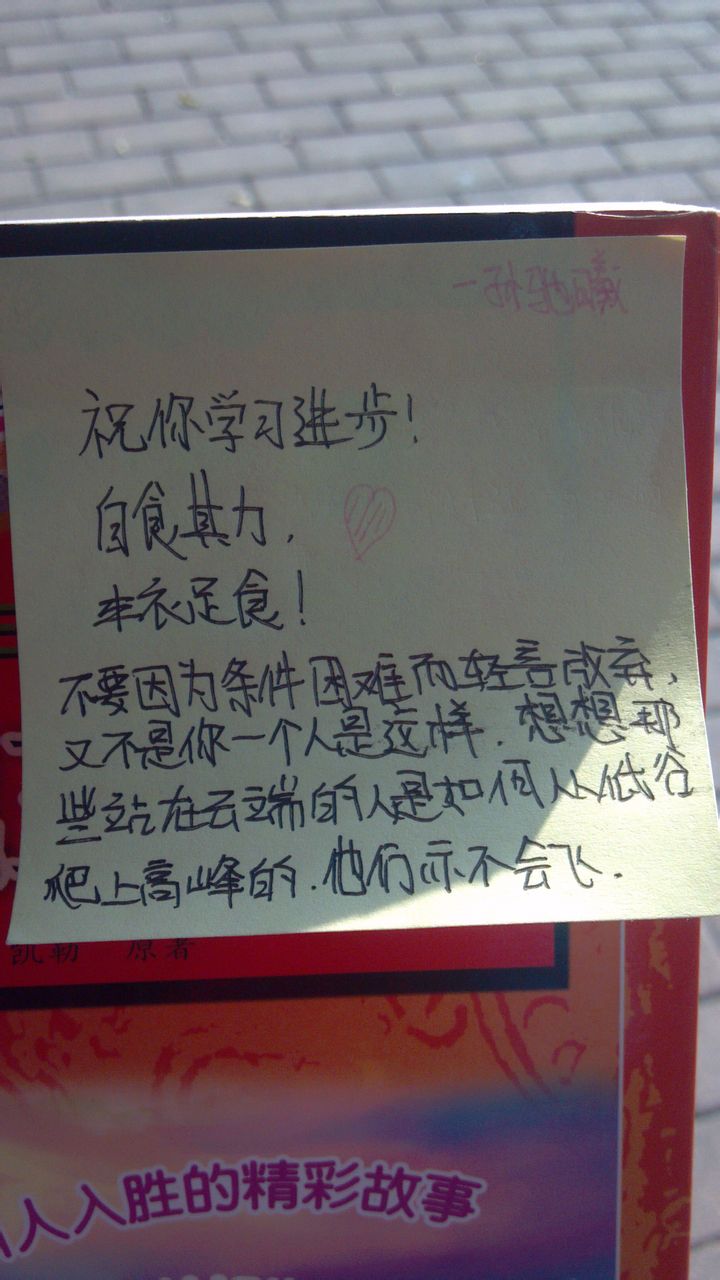 一孙雅曦
祝你学习进步!
自食其力,
丰衣足食!
不要因为条件困难而轻言放弃,
又不是你一个人是这样.想想那
些站在云端的人是如何从低谷
爬上高峰的.他们亦不会飞.
凯勒 原著
人入胜的精彩故事